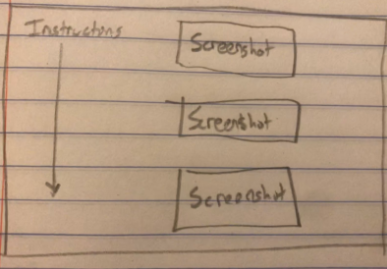 Instructions
Screenshot
Screenshot
Screenshot